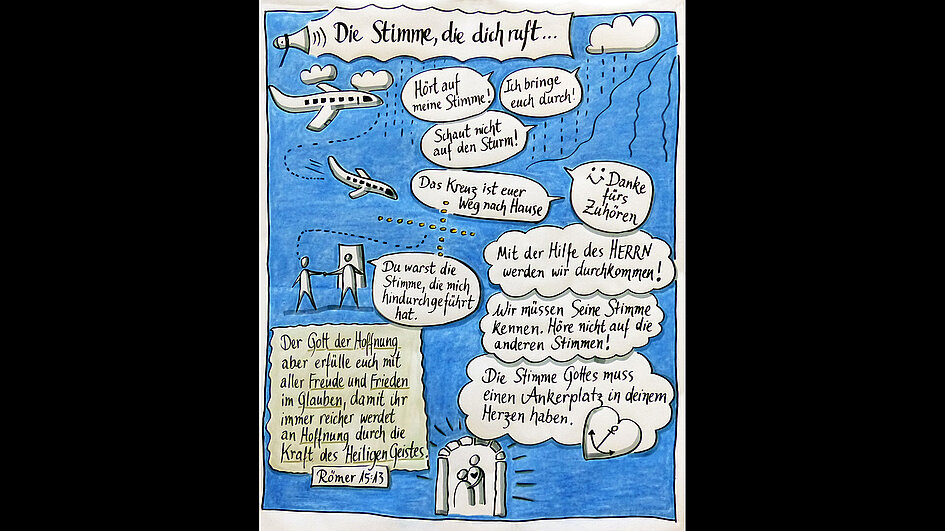 Die Stimme, die dich ruft...
Hört auf
meine Stimme!
Ich bringe
euch durch!
Schaut nicht
auf den Sturm!
Das Kreuz ist euer
Weg nach Hause
Danke
fürs
Zuhören
Mit der Hilfe des HERRN
werden wir durchkommen!
Du warst die
Stimme, die mich
hindurchgeführt
hat.
Wir müssen Seine Stimme
kennen. Höre nicht auf die
anderen Stimmen!
Der Gott der Hoffnung
aber erfülle euch mit
aller Freude und Frieden
im Glauben, damit ihr
immer reicher werdet
an Hoffnung durch die
Kraft des Heiligen Geistes.
Römer 15:13
Die Stimme Gottes muss
einen Ankerplatz in deinem
Herzen haben.